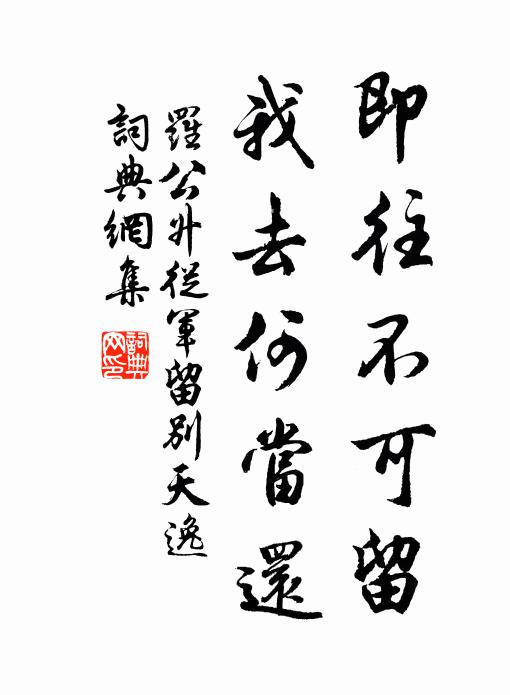 即往不可留
我去何當還
羅公升從軍留別天逸
詞典網集
詞典網印